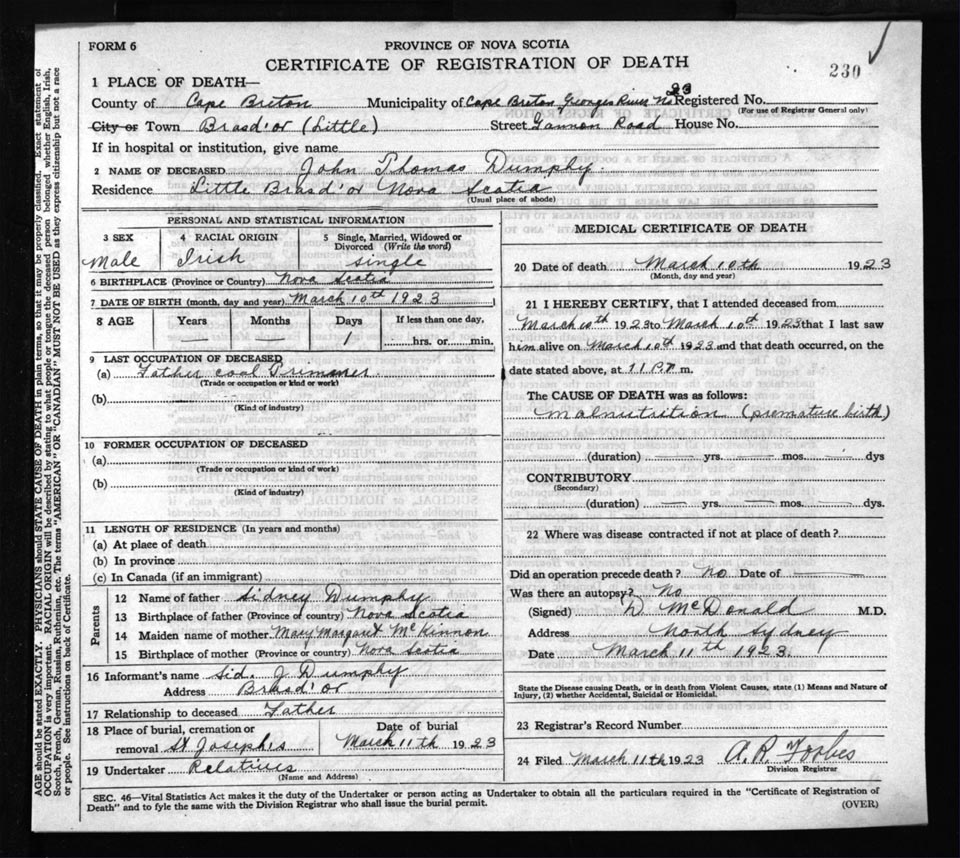 FORM 6
PROVINCE OF NOVA SCOTIA
CERTIFICATE OF REGISTRATION OF DEATH
230
1 PLACE OF DEATH—
County of Cape Breton Municipality of Cape Breton Georges River No 23 Registered No.
(For use of Registrar General only)
City or Town Brasd'or (Little) Street Gannon Road House No.
If in hospital or institution, give name
2 NAME OF DECEASED John Thomas Dumphy
Residence Little Brasd'or Nova Scotia
(Usual place of abode)
PERSONAL AND STATISTICAL INFORMATION
3 SEX 4 RACIAL ORIGIN 5 Single, Married, Widowed or Divorced (Write the word)
Male Irish single
6 BIRTHPLACE (Province or Country) Nova Scotia
7 DATE OF BIRTH (month, day and year) March 10th 1923
8 AGE Years Months Days If less than one day,
— — 1 hrs. or min.
9 LAST OCCUPATION OF DECEASED
(a) Father coal Trimmer
(Trade or occupation or kind of work)
(b)
(Kind of industry)
10 FORMER OCCUPATION OF DECEASED
(a)
(Trade or occupation or kind of work)
(b)
(Kind of industry)
11 LENGTH OF RESIDENCE (In years and months)
(a) At place of death
(b) In province
(c) In Canada (if an immigrant)
Parents
12 Name of father Sidney Dumphy
13 Birthplace of father (Province or country) Nova Scotia
14 Maiden name of mother Mary Margaret McKinnon
15 Birthplace of mother (Province or country) Nova Scotia
16 Informant's name Sid. J Dumphy
Address Brasd'or
17 Relationship to deceased Father
18 Place of burial, cremation or removal St Joseph's
Date of burial
March 11th 1923
19 Undertaker Relatives
(Name and Address)
MEDICAL CERTIFICATE OF DEATH
20 Date of death March 10th 1923
(Month, day and year)
21 I HEREBY CERTIFY, that I attended deceased from
March 10th 1923 to March 10th 1923 that I last saw
him alive on March 10th 1923 and that death occurred, on the
date stated above, at 11 P. m.
The CAUSE OF DEATH was as follows:
Malnutrition (premature birth)
(duration) — yrs. — mos. — dys
CONTRIBUTORY
(Secondary)
(duration) — yrs. — mos. — dys.
22 Where was disease contracted if not at place of death?
Did an operation precede death? No Date of —
Was there an autopsy? No
(Signed) D McDonald M.D.
Address North Sydney
Date March 11th 1923.
State the Disease causing Death, or in death from Violent Causes, state (1) Means and Nature of
Injury, (2) whether Accidental, Suicidal or Homicidal.
23 Registrar's Record Number
24 Filed March 11th 1923 A. R. Forbes
Division Registrar
SEC. 46—Vital Statistics Act makes it the duty of the Undertaker or person acting as Undertaker to obtain all the particulars required in the "Certificate of Registration of
Death" and to fyle the same with the Division Registrar who shall issue the burial permit.
(OVER)
AGE should be stated EXACTLY. PHYSICIANS should STATE CAUSE OF DEATH in plain terms, so that it may be properly classified. Exact statement of
OCCUPATION is very important. RACIAL ORIGIN will be described by stating to what people or tongue the deceased person belonged whether English, Irish,
Scotch, French, German, Russian, Ruthenian, etc. The terms "AMERICAN" OR "CANADIAN" MUST NOT BE USED as they express citizenship but not a race
or people. See instructions on back of Certificate.